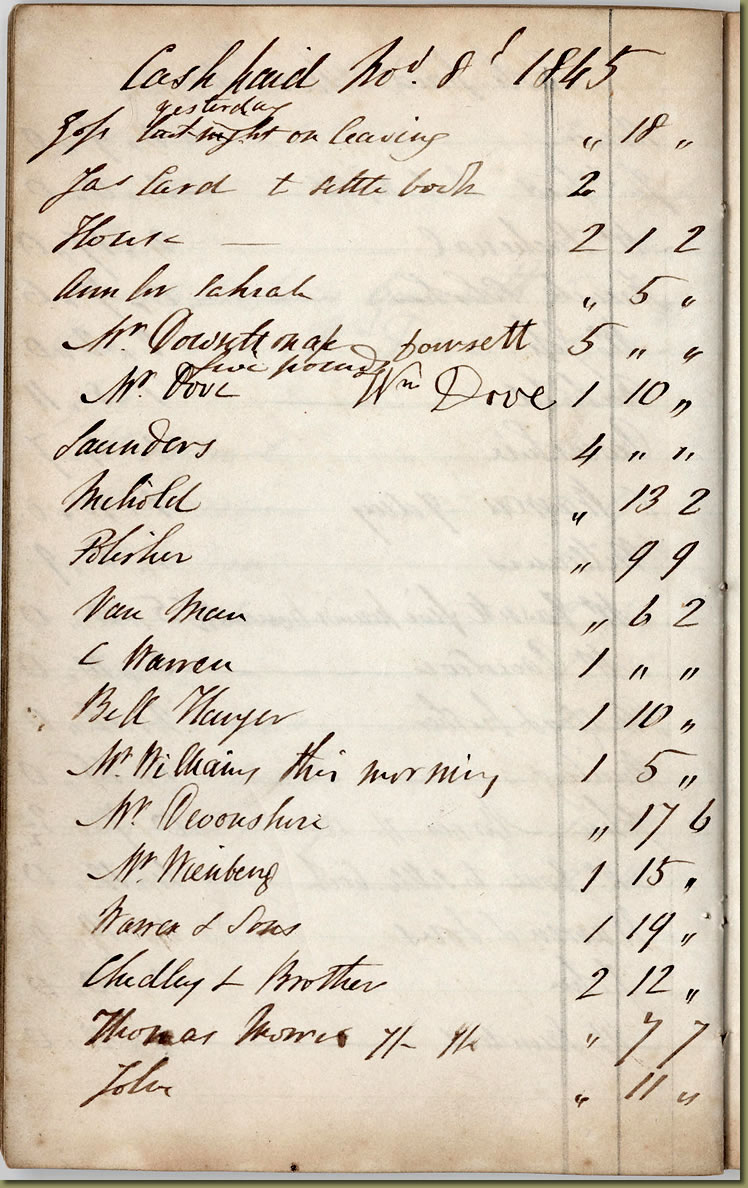 Cash paid Nov.r 8th 1845
yesterday
Goss last night on leaving " 18 "
Jas Card to settle book 2
House — 2 1 2
Ann for Sahrah " 5 "
Mr. Dowsett on ak Dowsett 5 " "
five pounds
Mr. Dove Wm Dove 1 10 "
Saunders 4 " "
Mehold " 13 2
Polisher " 9 9
Van Man " 6 2
C Warren 1 " "
Bell Hanger 1 10 "
Mr. Williams this morning 1 5 "
Mr. Devonshire " 17 6
Mr. Wienberg 1 15 "
Warren & Sons 1 19 "
Chudley & Brother 2 12 "
Thomas Morris 7/- " 7 7
John " 11 "